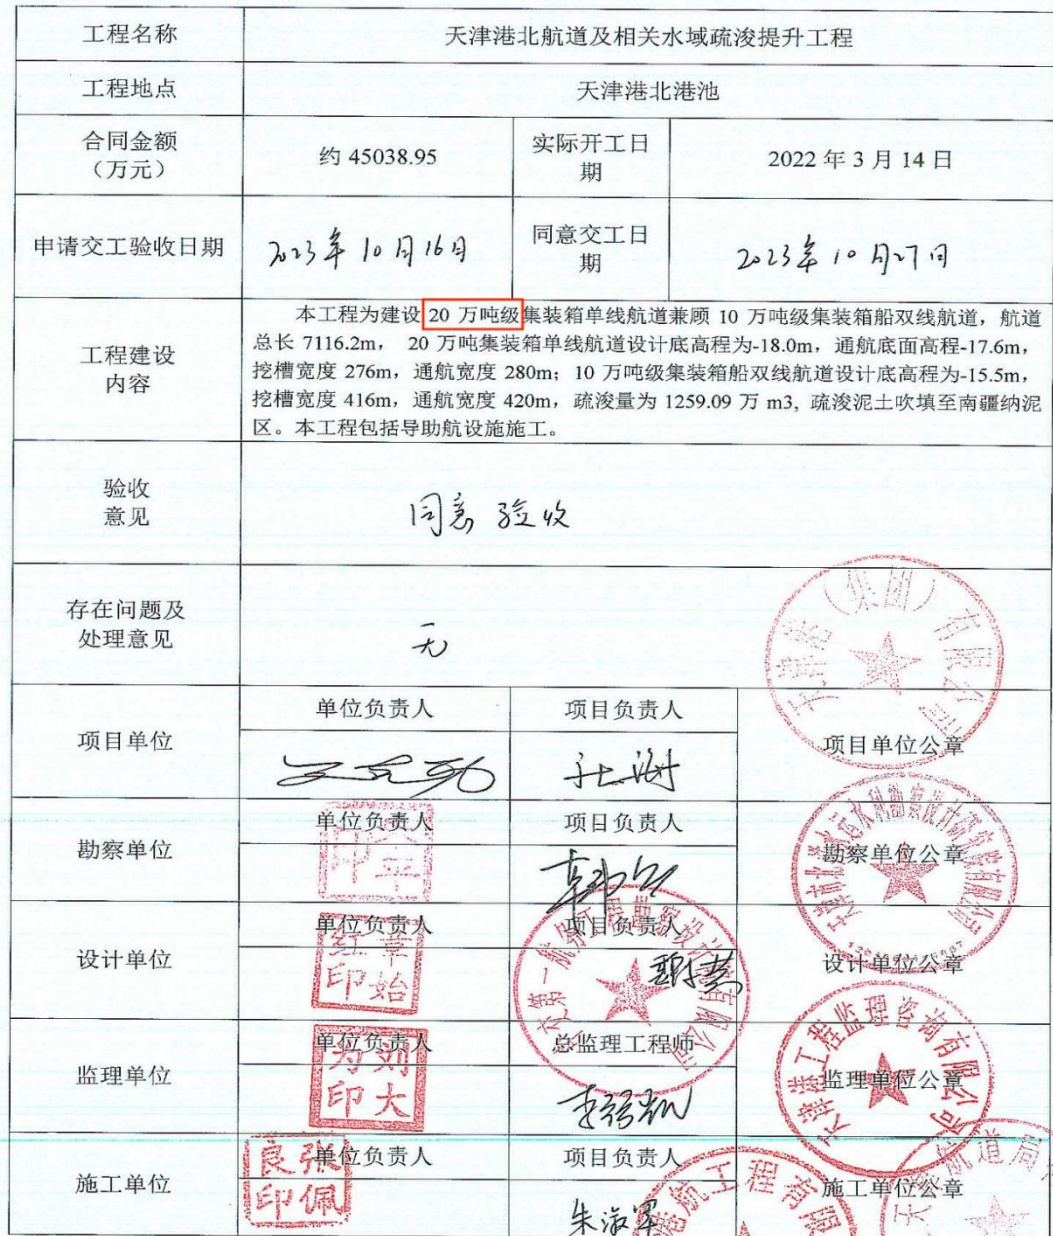 工程名称
天津港北航道及相关水域疏浚提升工程
工程地点
天津港北港池
合同金额
（万元）
约 45038.95
实际开工日
期
2022 年 3 月 14 日
申请交工验收日期
2023年 10月16日
同意交工日
期
2023年 10月27日
工程建设
内容
本工程为建设 20 万吨级集装箱单线航道兼顾 10 万吨级集装箱船双线航道，航道
总长 7116.2m， 20 万吨集装箱单线航道设计底高程为-18.0m，通航底面高程-17.6m，
挖槽宽度 276m，通航宽度 280m；10 万吨级集装箱船双线航道设计底高程为-15.5m，
挖槽宽度 416m，通航宽度 420m，疏浚量为 1259.09 万 m3, 疏浚泥土吹填至南疆纳泥
区。本工程包括导助航设施施工。
验收
意见
同意验收
存在问题及
处理意见
无
天津港（集团）有限公司
项目单位
单位负责人
项目负责人
项目单位公章
勘察单位
单位负责人
项目负责人
勘察单位公章
设计单位
单位负责人
项目负责人
设计单位公章
章始红印
监理单位
单位负责人
总监理工程师
监理单位公章
天津港工程监理咨询有限公司
施工单位
单位负责人
项目负责人
施工单位公章
张佩良印